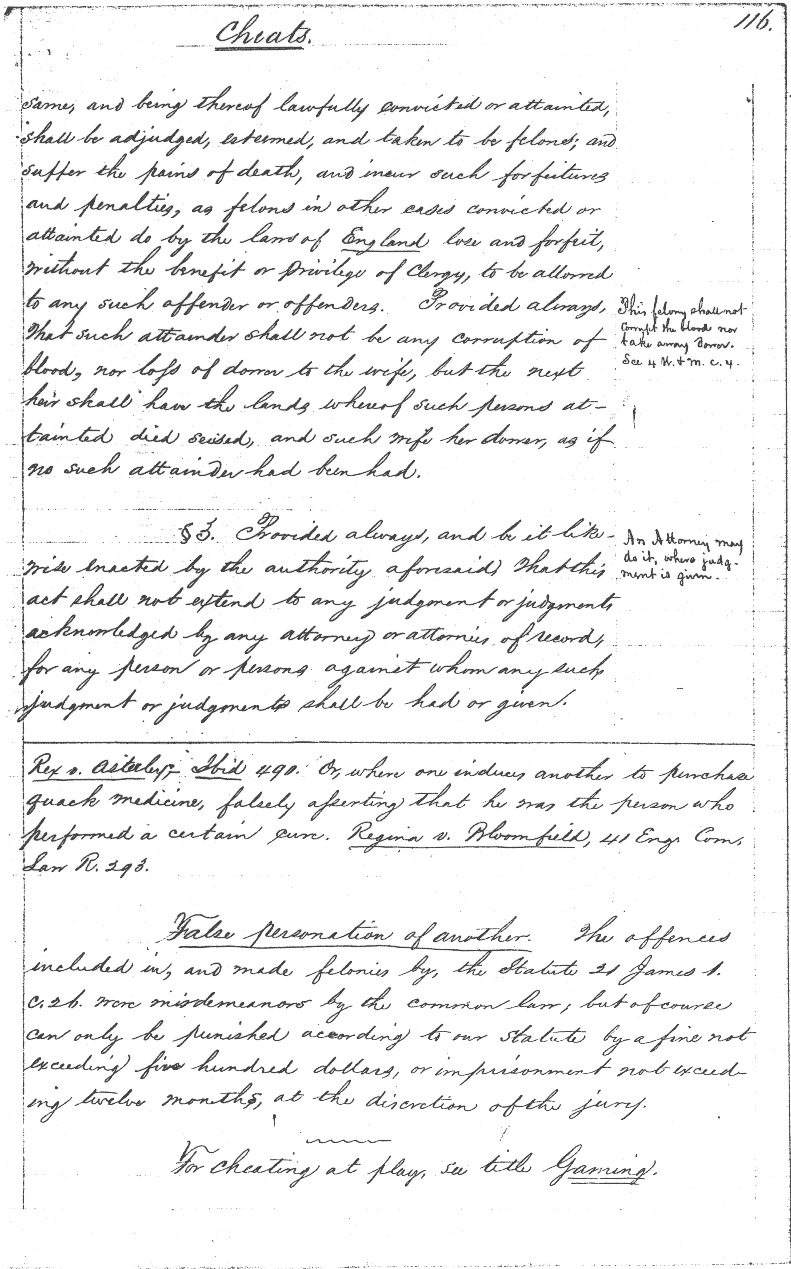 116.
Cheats.
same, and being thereof lawfully convicted or attainted,
shall be adjudged, esteemed, and taken to be felons; and
suffer the pains of death, and incur such forfeitures
and penalties, as felons in other cases convicted or
attainted do by the laws of England lose and forfeit,
without the benefit or privilege of Clergy, to be allowed
to any such offender or offenders. Provided always,
That such attainder shall not be any corruption of
blood, nor loss of dower to the wife, but the next
heir shall have the lands whereof such persons at-
tainted died seised, and such wife her dower, as if
no such attainder had been had.
This felony shall not
corrupt the blood nor
take away Dower.
See 4 W. & M. c. 4.
§3. Provided always, and be it like-
wise enacted by the authority aforesaid, That this
act shall not extend to any judgment or judgments
acknowledged by any attorney or attornies of record,
for any person or persons against whom any such
judgment or judgments shall be had or given.
An Attorney may
do it, where judg-
ment is given.
Rex v. Asterley, Ibid 490. Or, where one induces another to purchase
quack medicine, falsely asserting that he was the person who
performed a certain cure. Regina v. Bloomfield, 41 Eng. Com.
Law R. 293.
False personation of another. The offences
included in, and made felonies by, the Statute 21 James 1.
c. 26. were misdemeanors by the common law; but of course
can only be punished according to our statute by a fine not
exceeding five hundred dollars, or imprisonment not exceed-
ing twelve months, at the discretion of the jury.
For cheating at play, see title Gaming.